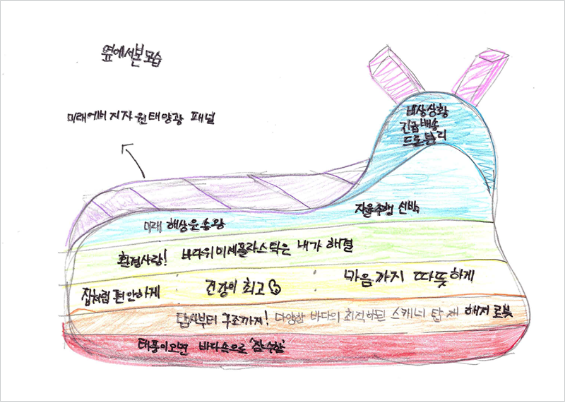 옆에서본모습
미래에너지자원태양광 패널
비상상황
긴급배송
드론
자율주행 선박
미래 해상운송왕
환경사랑! 바다위미세플라스틱은 내가 해결
집처럼 편안하게 건강이 최고 마음까지 따뜻하게
탐사부터 구조까지! 다양한 바다의 최적화된 스캐너 탑재 해저로봇
태풍이오면 바다속으로 '잠수함'